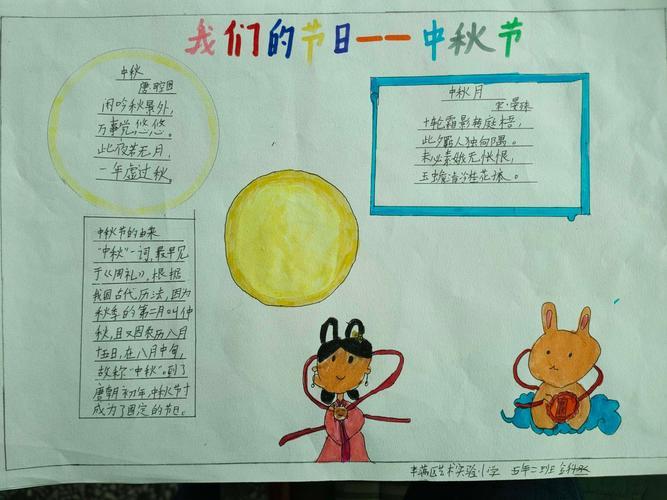 我们的节日——中秋节
中秋
唐·司空图
闲吟秋景外，
万事觉悠悠。
此夜若无月，
一年虚过秋
中秋月
宋·晏殊
十轮霜影转庭梧，
此夕羁人独向隅。
未必素娥无怅恨，
玉蟾清冷桂花孤。
中秋节的由来
“中秋”一词，最早见
于《周礼》，根据
我国古代历法，因为
秋季的第二月叫仲
秋，且又因农历八月
十五日，在八月中旬，
故称“中秋”。到了
唐朝初年，中秋节才
成为了固定的节日。
丰满区艺术实验小学 五年二班